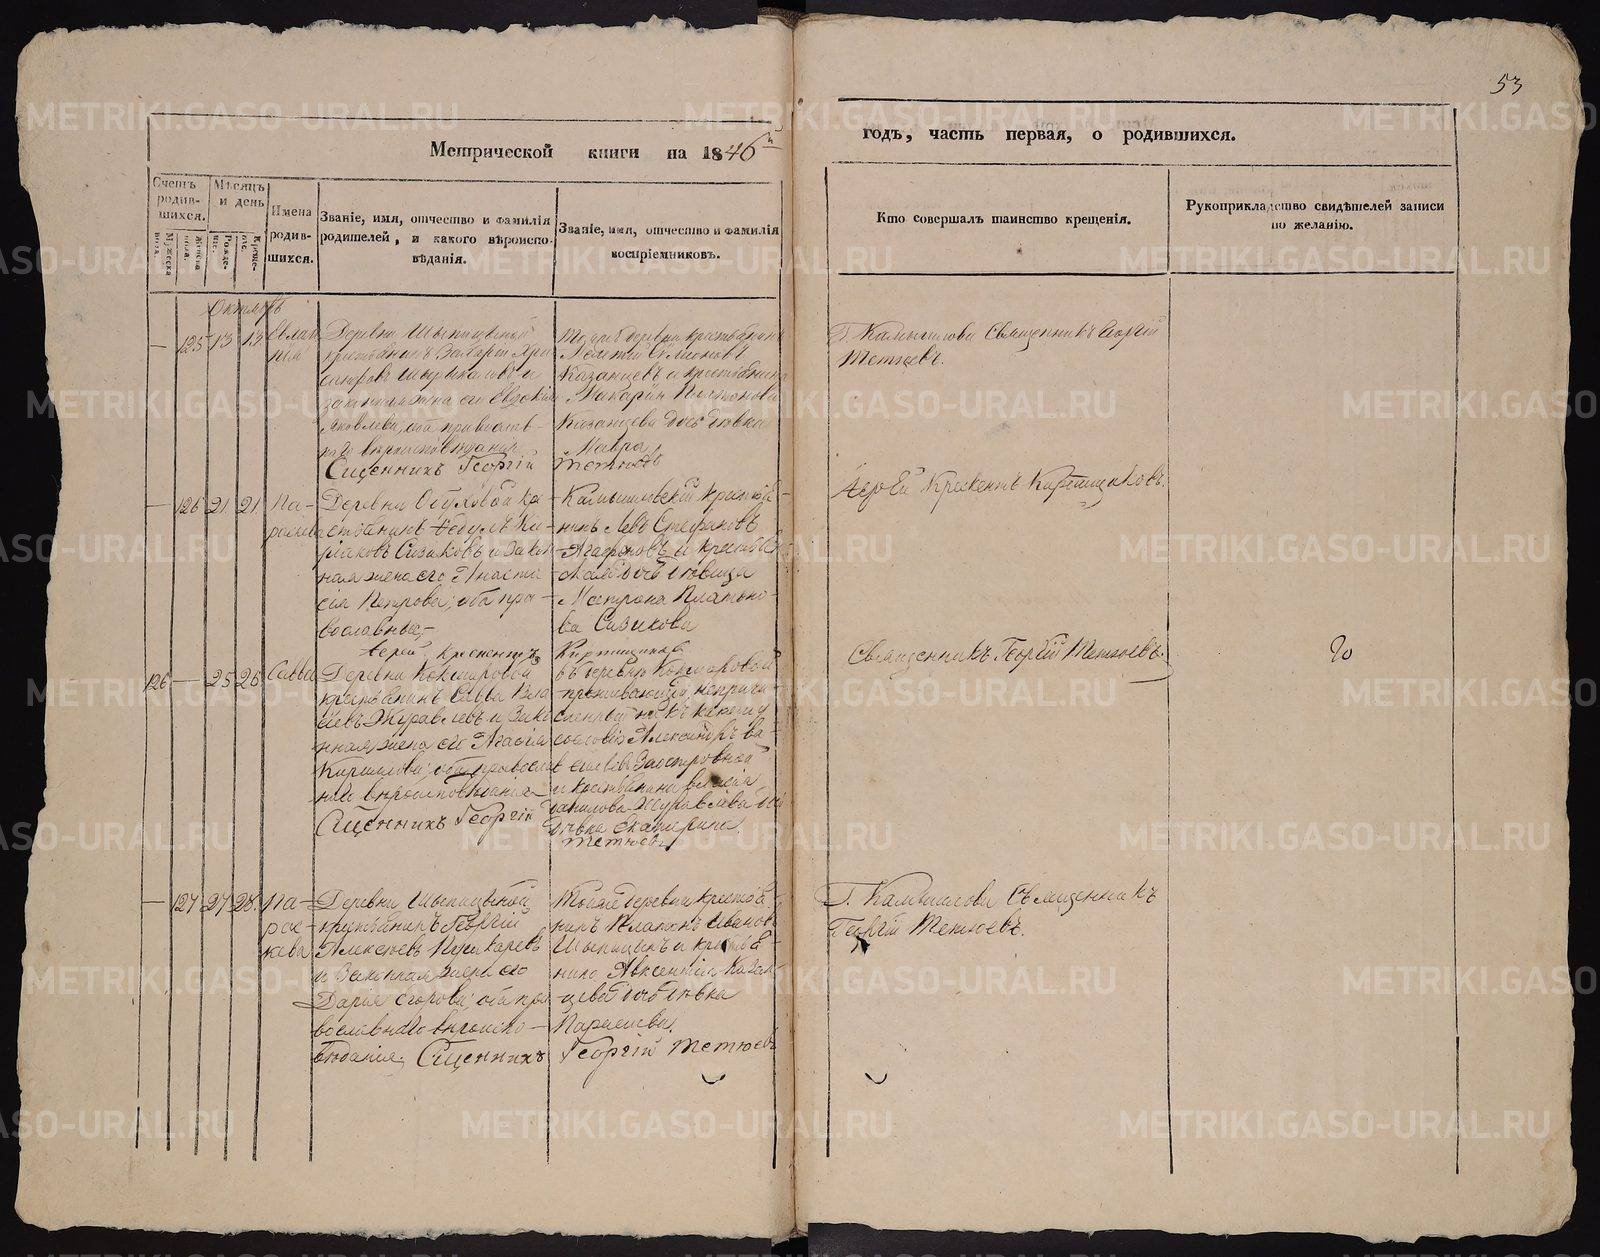 53
Метрической книги на 1846й
годъ, часть первая, о родившихся.
Счетъ родив-шихся.
Мужеска пола.
Женска пола.
Мѣсяцъ и день
Рожде-нія.
Креще-нія.
Имена родив-шихся.
Званіе, имя, отчество и фамилія родителей, и какого вѣроиспо-вѣданія.
Званіе, имя, отчество и фамилія воспріемниковъ.
Кто совершалъ таинство крещенія.
Рукоприкладство свидѣтелей записи по желанію.
Октябрь
— 125 13 13
Деревни
крестьянинъ Захарій
законная жена его Евдокія
Яковлева, оба православ-
наго вѣроисповѣданія
Сщенникъ Георгій
Тоей же деревни крестьянинъ
Казанцевъ и крестьянина
Макарія Платонова
Казанцева дочь дѣвка
Мавра
Тетюевъ
Г. Камышлова Священникъ Георгій
Тетюевъ.
— 126 21 21 Па-
раскева
Деревни Обуховой кре-
стьянинъ
Сизиковъ и закон-
ная жена его Анаста-
сія Петрова, оба пра-
вославные,-
Іерей Крескентъ
Камышловскій крестья-
нинъ Левъ Стефановъ
Агафоновъ и крестьян-
дочь дѣвица
Матрона Платоно-
ва Сизикова
Кирпищиковъ
Іерей Крескентъ Кирпищиковъ.
126 — 25 26 Савва
Деревни Кокшаровой
крестьянинъ Савва Вла-
сіевъ Журавлевъ и зако-
нная жена его Агафія
Кирилова, оба православ-
наго вѣроисповѣданія
Сщенникъ Георгій
въ деревнѣ Кокшаровой
проживающій, непричи-
сленный ни къ какому
сословію Александръ Ва-
сильевъ Заостровной
и крестьянина
Данилова Журавлева до-
дѣвка Екатерина.
Тетюевъ
Священникъ Георгій Тетюевъ.
— 127 27 28 Па-
рас-
кева
Деревни Шипицыной
крестьянинъ Георгій
Алексѣевъ Пушкаревъ
и законная жена его
Дарія Егорова, оба пра-
вославнаго вѣроиспо-
вѣданія. Сщенникъ
Тойже деревни крестья-
нинъ Платонъ Ивановъ
Шипицынъ и крестья-
нина Авксентія Казан-
цева дочь дѣвка
Параскева.
Георгій Тетюевъ
Г. Камышлова Священникъ
Георгій Тетюевъ.
METRIKI.GASO-URAL.RU